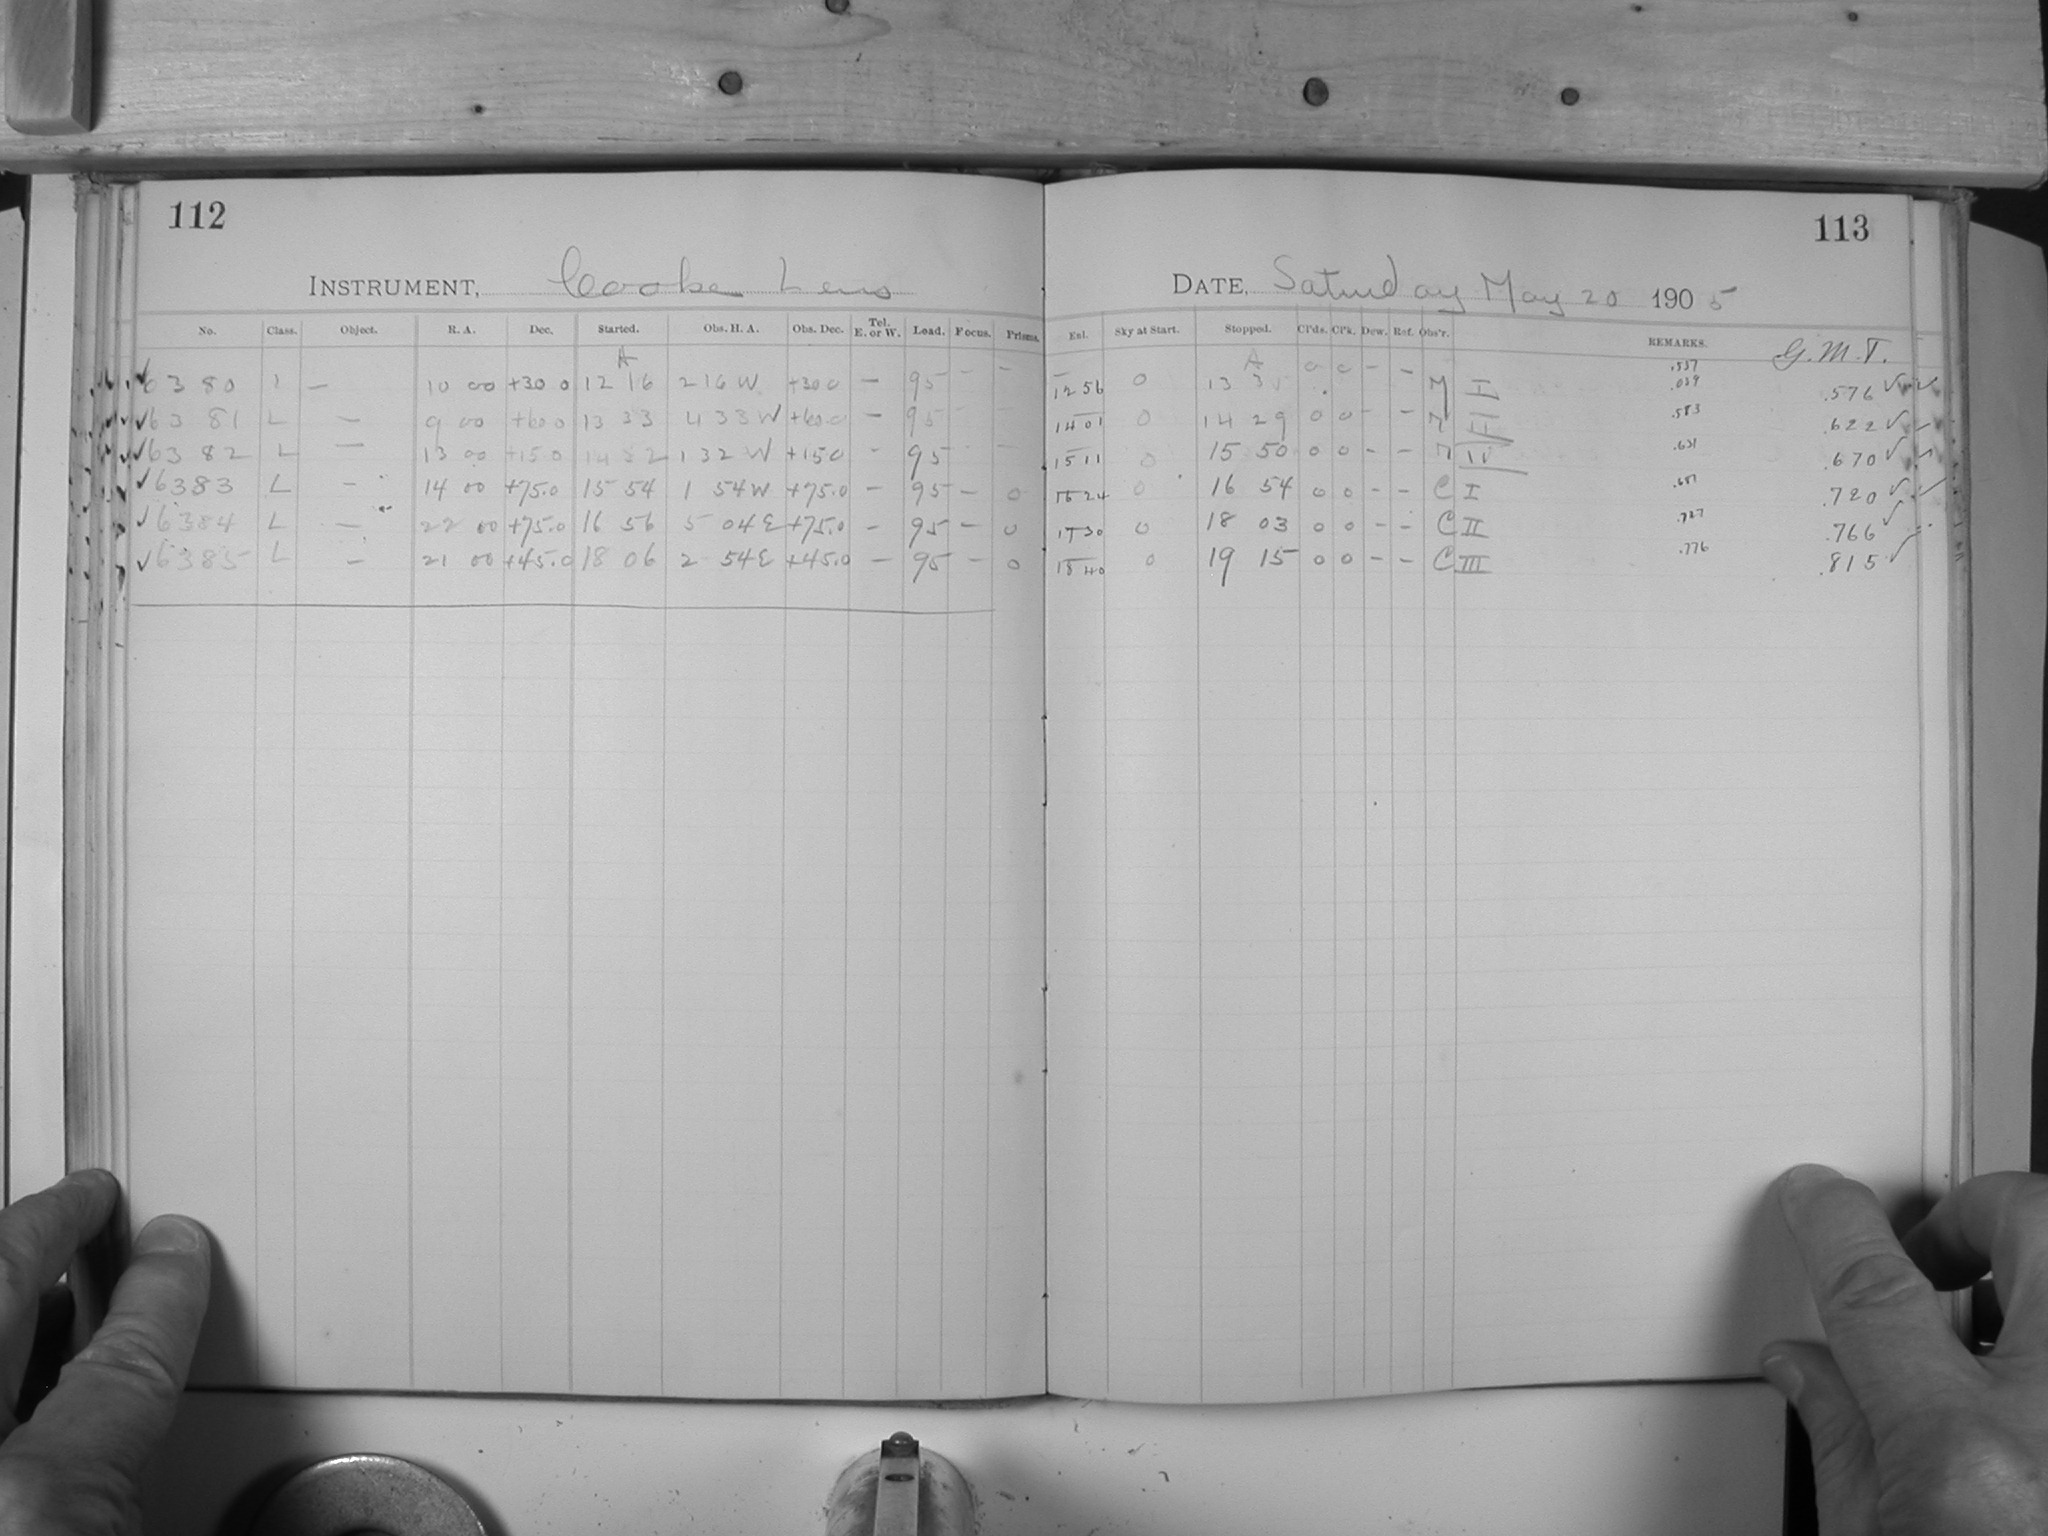 112
INSTRUMENT, Cooke Lens
No. Class. Object. R. A. Dec. Started. Obs. H. A. Obs. Dec. Tel. E. or W. Load. Focus. Prisms.
A
6380 — 10 00 +30 0 12 16 2 16 W +30 0 — 95 - -
✓6381 L — 9 00 +60 0 13 33 4 33 W +60.0 — 95 - -
✓6382 L — 13 00 +15 0 1 32 W +15 0 - 95 - -
✓6383 L — 14 00 +75.0 15 54 1 54 W +75.0 — 95 — 0
✓6384 L — 22 00 +75.0 16 56 5 04 E +75.0 — 95 — 0
✓6385 L — 21 00 +45.0 18 06 2 54 E +45.0 — 95 — 0
113
DATE, Saturday May 20 1905
Exl. Sky at Start. Stopped. Cl'ds. Cl'k. Dew. Ref. Obs'r. REMARKS. G.M.T.
A
12 56 0 13 0 0 - - M I .537 .039 .576 ✓
14 01 0 14 29 0 0 - - M .583 .622 ✓
15 11 0 15 50 0 0 - - M IV .631 .670 ✓
16 24 0 16 54 0 0 - - C I .681 .720 ✓
17 30 0 18 03 0 0 - - C II .727 .766 ✓
18 40 0 19 15 0 0 - - C III .776 .815 ✓